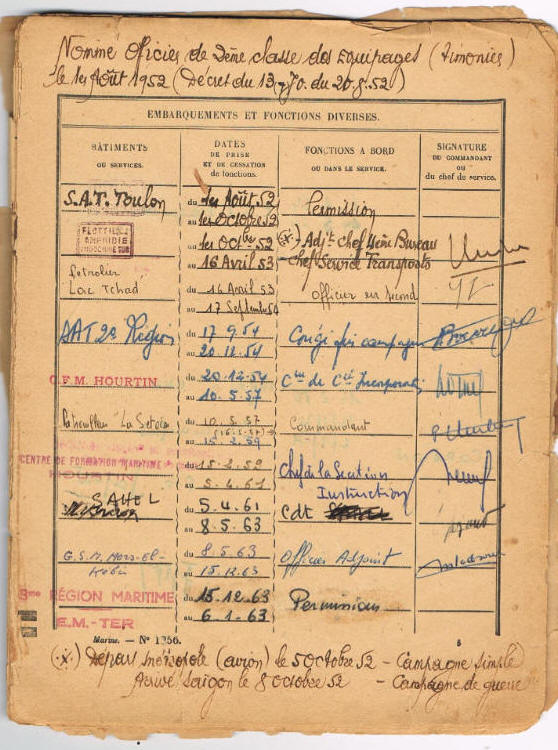 Nommé officier de 2ème classe des Equipages (Timonier)
le 1er Août 1952 (Décret du 13 du 20.8.52)
EMBARQUEMENTS ET FONCTIONS DIVERSES.
BÂTIMENTS
OU SERVICES.
DATES
DE PRISE
ET DE CESSATION
de fonctions.
FONCTIONS A BORD
OU DANS LE SERVICE.
SIGNATURE
DU COMMANDANT
OU
du chef de service.
S.A.T. Toulon
du 1er Août 52
au 1er Octobre 52
Permission
FLOTTILLE
AMPHIBIE
INDOCHINE SUD
du 1er Octbre 52
au 16 Avril 53
(x) Adjt Chef 4ème Bureau
Chef Service Transports
Petrolier
Lac Tchad
du 16 Avril 53
au 17 Septembre 54
Officier en second
SAT 2e Région
du 17 9.54
au 20.12.54
Congé fin campagne
C.F.M. HOURTIN
du 20.12.54
au 10.5.57
Cne de Cie Incorporation
Patrouilleur "La Setoise"
du 10.5.57
(16.5.57)
au 15.2.59
Commandant
CENTRE DE FORMATION MARITIME
HOURTIN
du 15.2.59
au 5.4.61
Chef de la Section
Instruction
SAHEL
du 5.4.61
au 8.5.63
Cdt
G.S.M. Mers-El-
Kebir
du 8.5.63
au 15.12.63
Officier Adjoint
3me RÉGION MARITIME
E.M.-TER
du 15.12.63
au 6.1.63
Permission
Marine. — N° 1356.
(x) Départ métropole (avion) le 5 Octobre 52 - Campagne simple
Arrivé Saïgon le 8 octobre 52 - Campagne de guerre